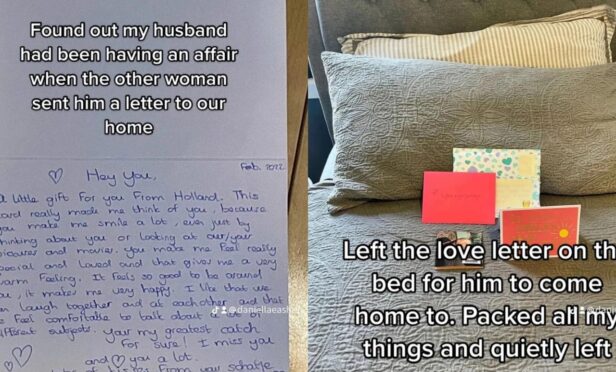 Found out my husband
had been having an affair
when the other woman
sent him a letter to our
home
Feb. 2022
Hey You,
little gift for you From Holland. This
card really made me think of you, because
you make me smile a lot, even just by
thinking about you or looking at our/your
pictures and movies, you make me Feel really
special and loved and that gives me a very
warm Feeling. It Feels so good to be around
you, it makes me very happy. I like that we
can laugh together and at each other and that
Feel comfortable to talk about a lot
different subjects. Your my greatest catch
For sure! I miss you
and ♡ you a lot.
From your schatje
@daniellaeashel
Left the love letter on th
bed for him to come
home to. Packed all my
things and quietly left